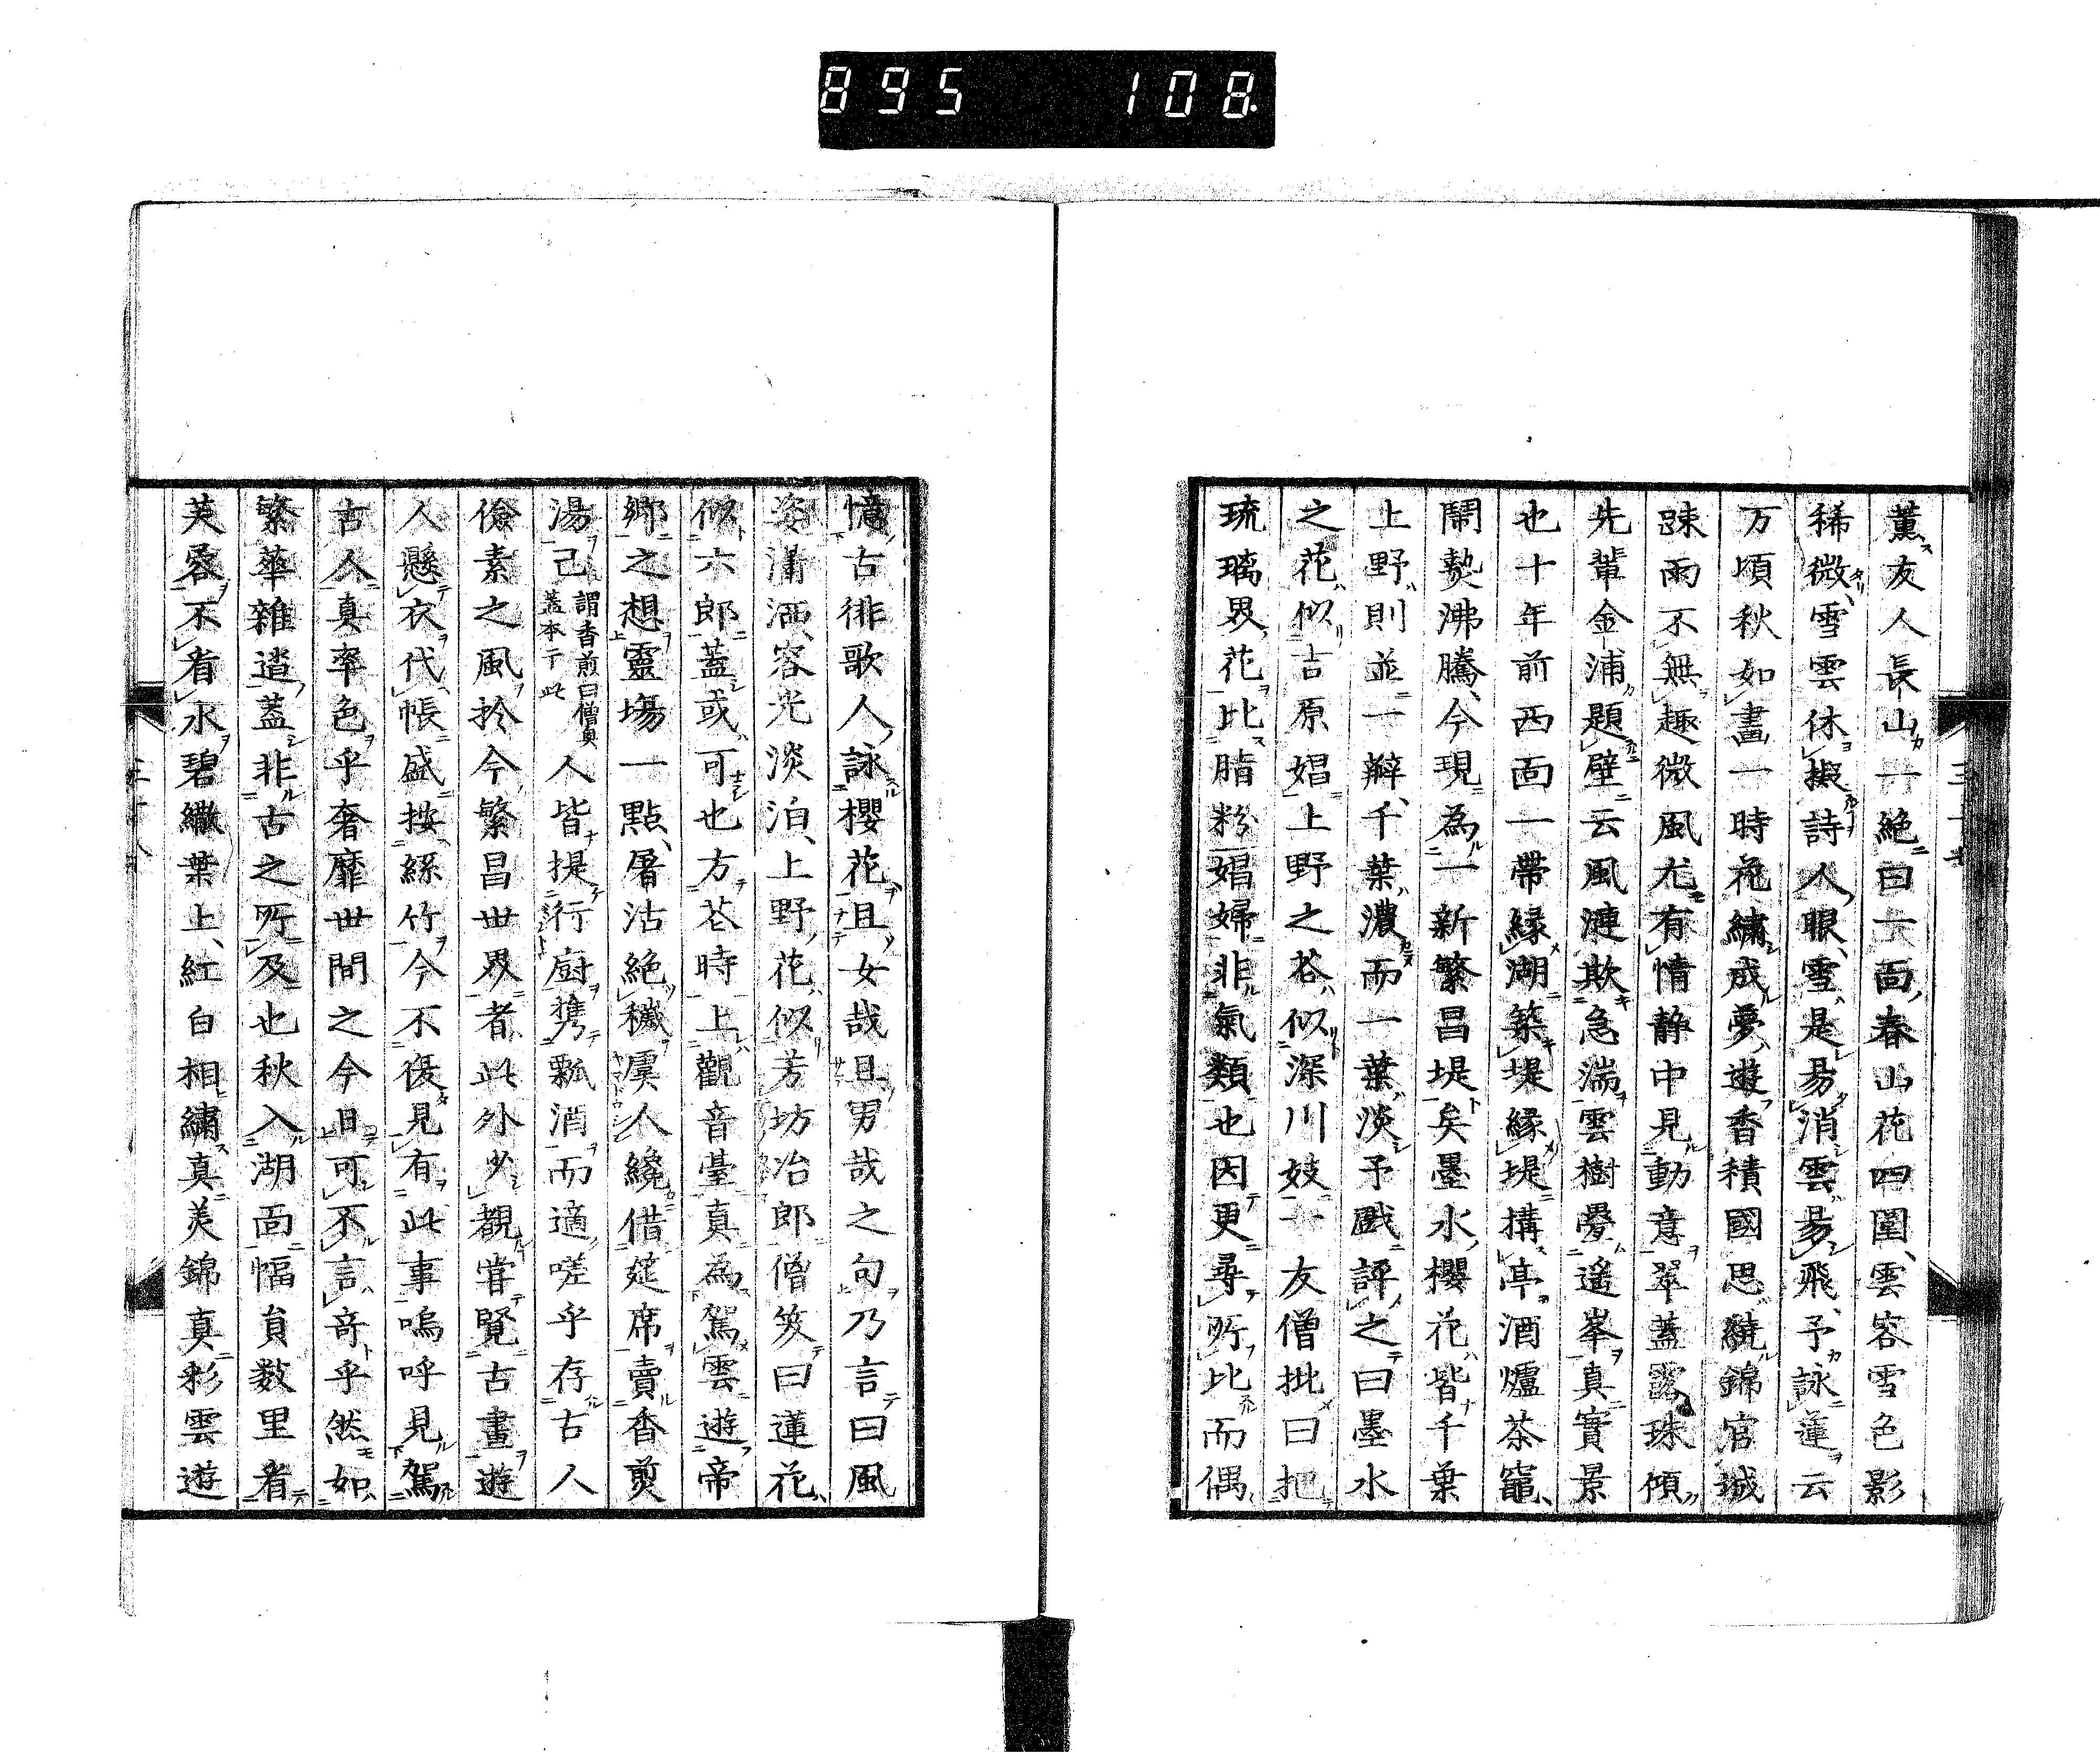 895 108.
薫友人長山一絶曰一面春山花四圍雲容雪色影
稀微雪雲休擬詩人眼雪是易消雲易飛予詠蓮云
万頃秋如畫一時花繡成夢遊香積國思繞錦官城
踈雨不無趣微風尤有情静中見動意翠蓋露珠傾
先輩金浦題壁云風漣欺急湍雲樹疊遙峯真實景
也十年前西面一帶緣湖築堤緣堤搆亭酒爐茶竈
鬧熱沸騰今現為一新繁昌堤矣墨水櫻花皆千葉
上野則並一瓣千葉濃而一葉淡予戲評之曰墨水
之花似吉原娼上野之花似深川妓一友僧批曰把
琉璃界花比脂粉娼婦非氣類也因更尋所比而偶
憶古徘歌人詠櫻花且女哉且男哉之句乃言曰風
姿瀟洒容光淡泊上野花似芳坊冶郎僧笑曰蓮花
似六郎蓋或可也方花時上觀音臺真為駕雲遊帝
鄉之想靈場一點屠沽絶穢虞人纔借筵席賣香煎
湯己謂香煎曰僧奥蓋本于此人皆提行廚携瓢酒而適嗟乎存古人
儉素之風於今繁昌世界者此外少覩嘗覽古畫遊
人懸衣代帳盛按絲竹今不復見有此事嗚呼見駕
古人真率色乎奢靡世間之今日可不言奇乎然如
繁華雜遝蓋非古之所及也秋入湖面幅員数里看
芙蓉不看水碧繖葉上紅白相繡真美錦真彩雲遊